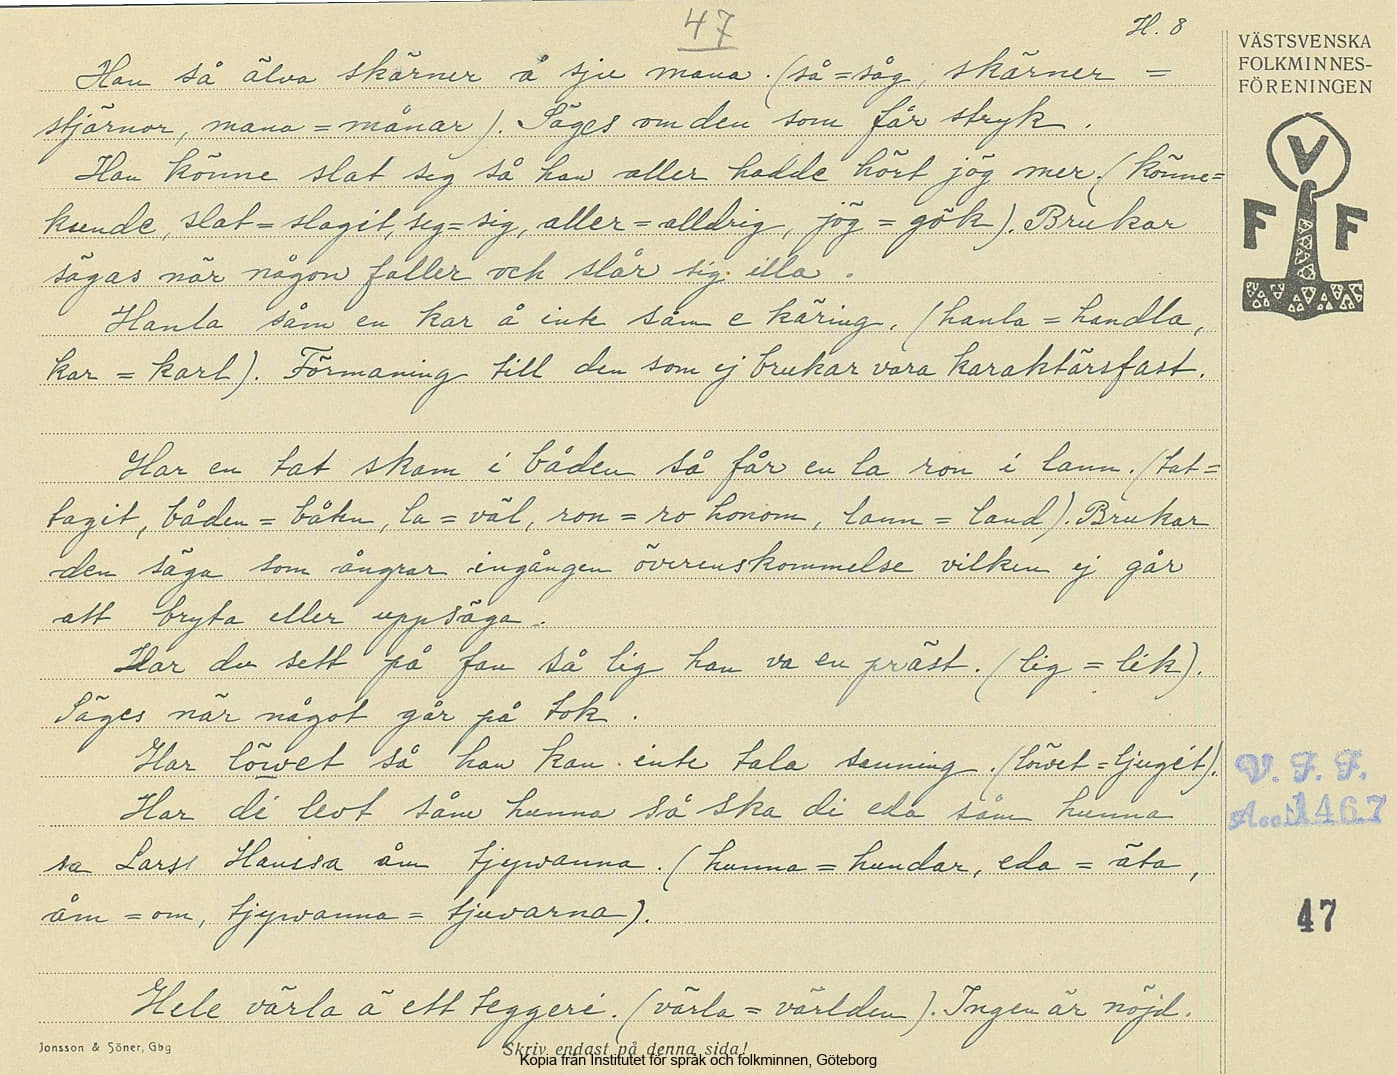 47
H. 8
Han så älva skärner å sju mana. (så = såg, skärner =
stjärnor, mana = månar). Säges om den som får stryk.
Han könne slat seg så han aller hadde hört jög mer. (könne =
kunde, slat = slagit, seg = sig, aller = alldrig, jög = gök). Brukar
sägas när någon faller och slår sig illa.
Hanla såm en kar å inte såm e käring. (hanla = handla,
kar = karl). Förmaning till den som ej brukar vara karaktärsfast.
Har en tat skam i båden så får en la ron i lann. (tat =
tagit, båden = båtn, la = väl, ron = ro honom, lann = land). Brukar
den säga som ångrar ingången överenskommelse vilken ej går
att bryta eller uppsäga.
Har du sett på fan så lig han va en präst. (lig = lik).
Säges när något går på tok.
Har löwet så han kan inte tala sanning. (löwet = ljugit).
Har di levt såm hunna så ska di eda såm hunna
sa Lars Hanssa åm tjywanna. (hunna = hundar, eda = äta,
åm = om, tjywanna = tjuvarna).
Hele värla ä ett teggeri. (värla = världen). Ingen är nöjd.
Jonsson & Söner, Gbg
Skriv endast på denna sida!
Kopia från Institutet för språk och folkminnen, Göteborg
VÄSTSVENSKA
FOLKMINNES-
FÖRENINGEN
V
F F
V. F. F.
Acc. 1467
47